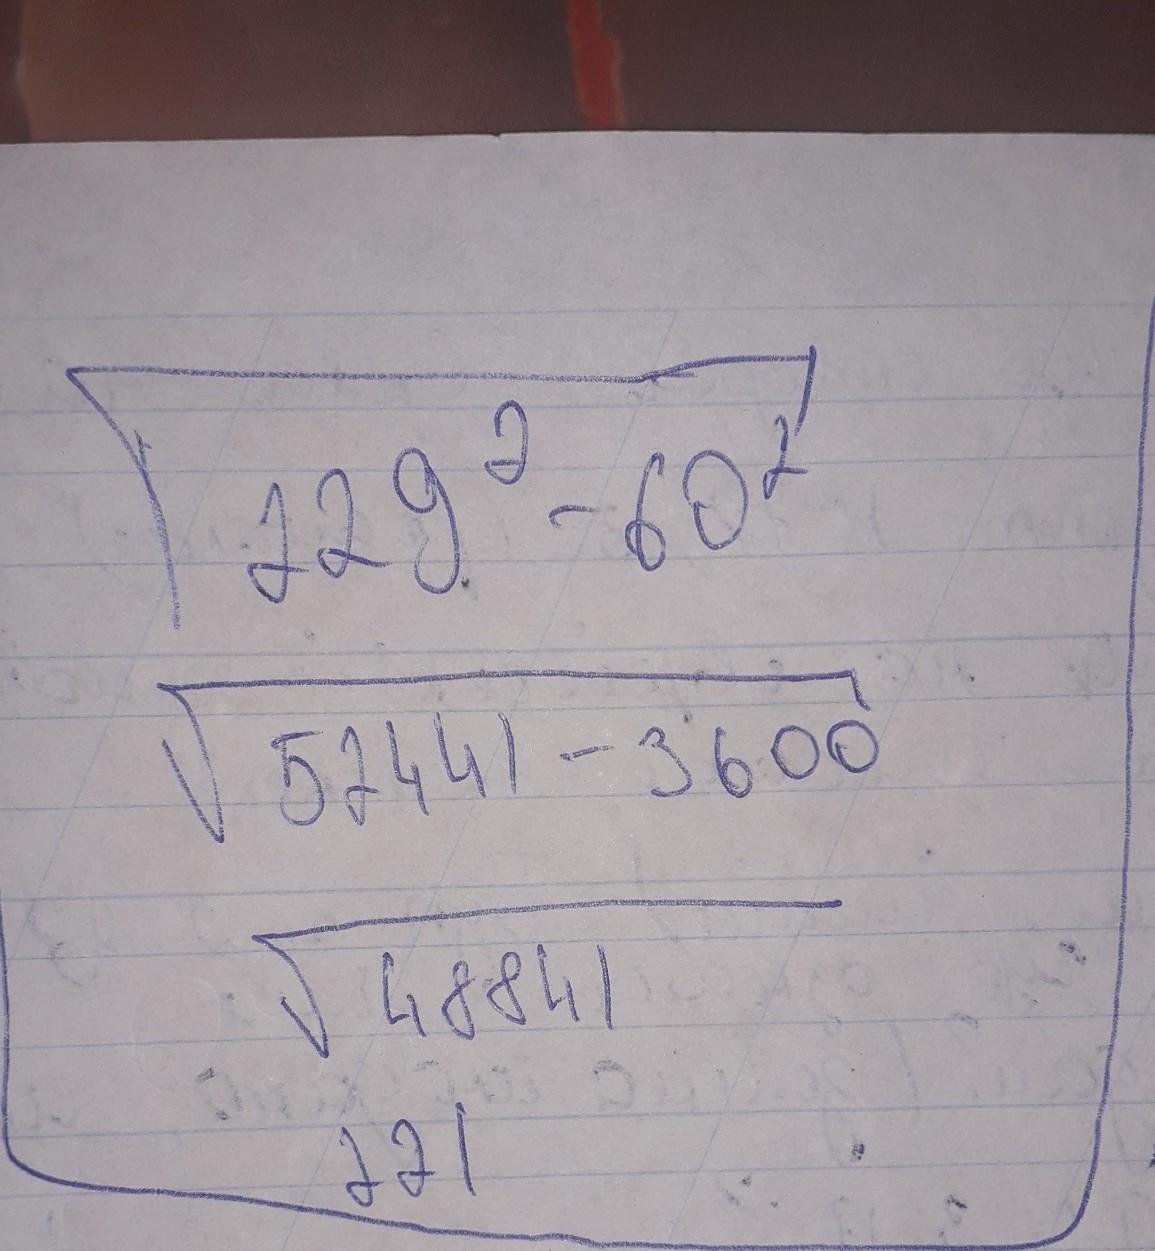 √229² - 60²
√52441 - 3600
√48841
221